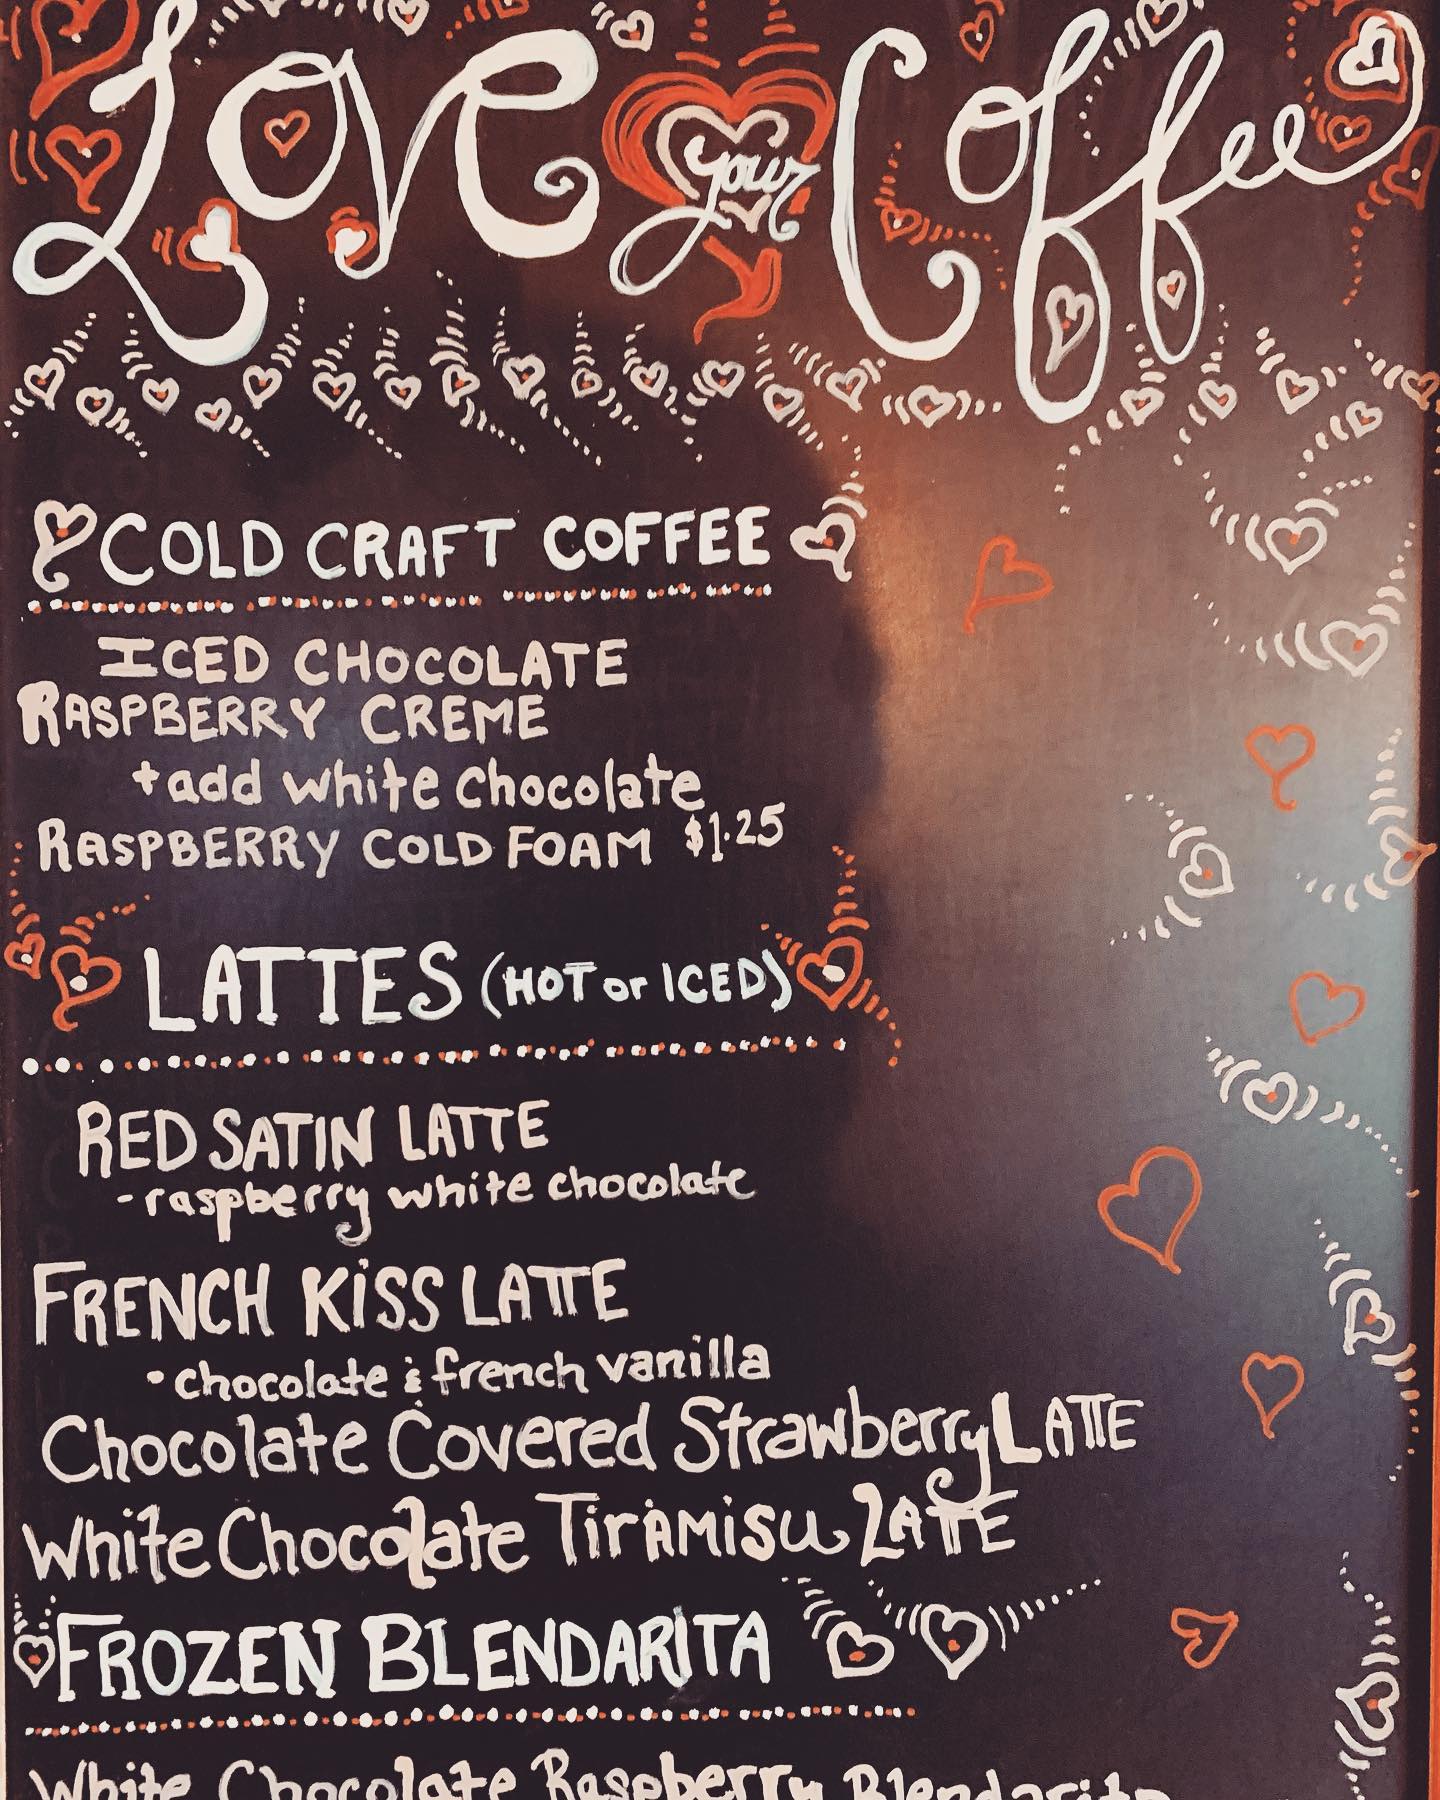 Love your Coffee
COLD CRAFT COFFEE
ICED CHOCOLATE
RASPBERRY CREME
+add white chocolate
RASPBERRY COLD FOAM $1.25
LATTES (HOT or ICED)
RED SATIN LATTE
-raspberry white chocolate
FRENCH KiSS LATTE
•chocolate & french vanilla
Chocolate Covered Strawberry LATTE
White Chocolate TirAMiSu LATTE
FROZEN BLENDARITA
White Chocolate Raspberry Blendarita